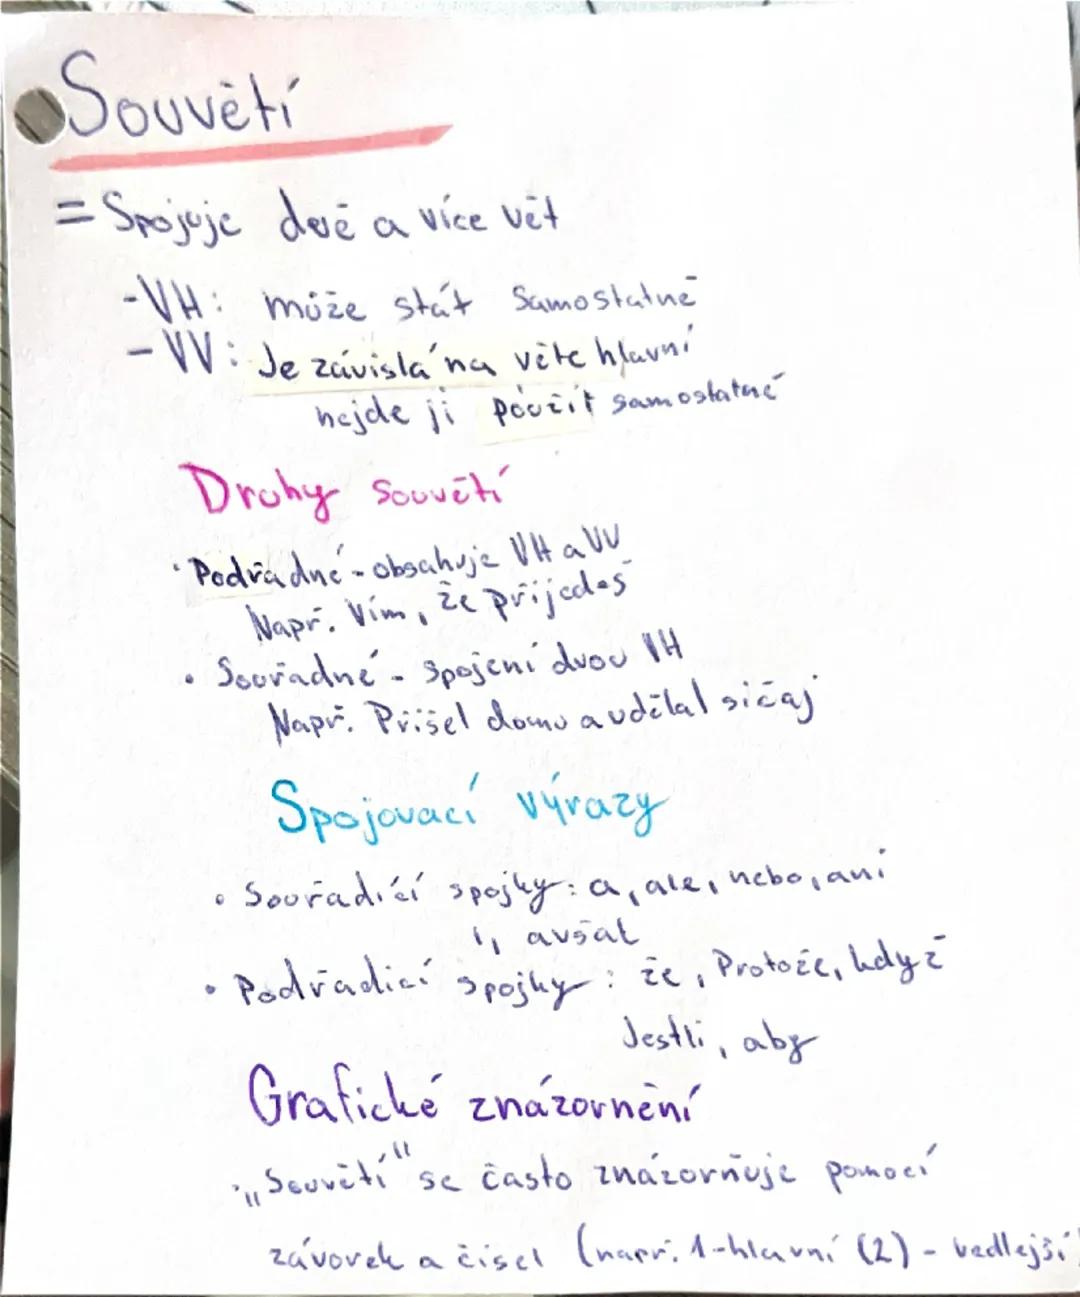 Souvětí
= Spojuje dvě a více vět
-VH: může stát samostatně
- VV: Je závislá na větě hlavní
nejde ji použít samostatně
Druhy souvětí
• Podřadné - obsahuje VH a VV
Např. Vím, že přijedeš
• Souřadné - spojení dvou VH
Např. Přišel domu a udělal si čaj
Spojovací výrazy
• Souřadící spojky: a, ale, nebo, ani
i, avšak
• Podřadicí spojky: že, Protože, když
Jestli, aby
Grafické znázornění
• „Souvětí" se často znázorňuje pomocí
závorek a čísel (např. 1-hlavní (2) - vedlejší)